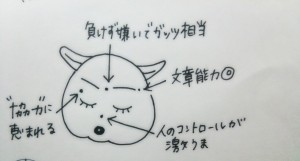 負けず嫌いでガッツ相当
文章能力◎
"協力"に
恵まれる
人のコントロールが
激ウマ